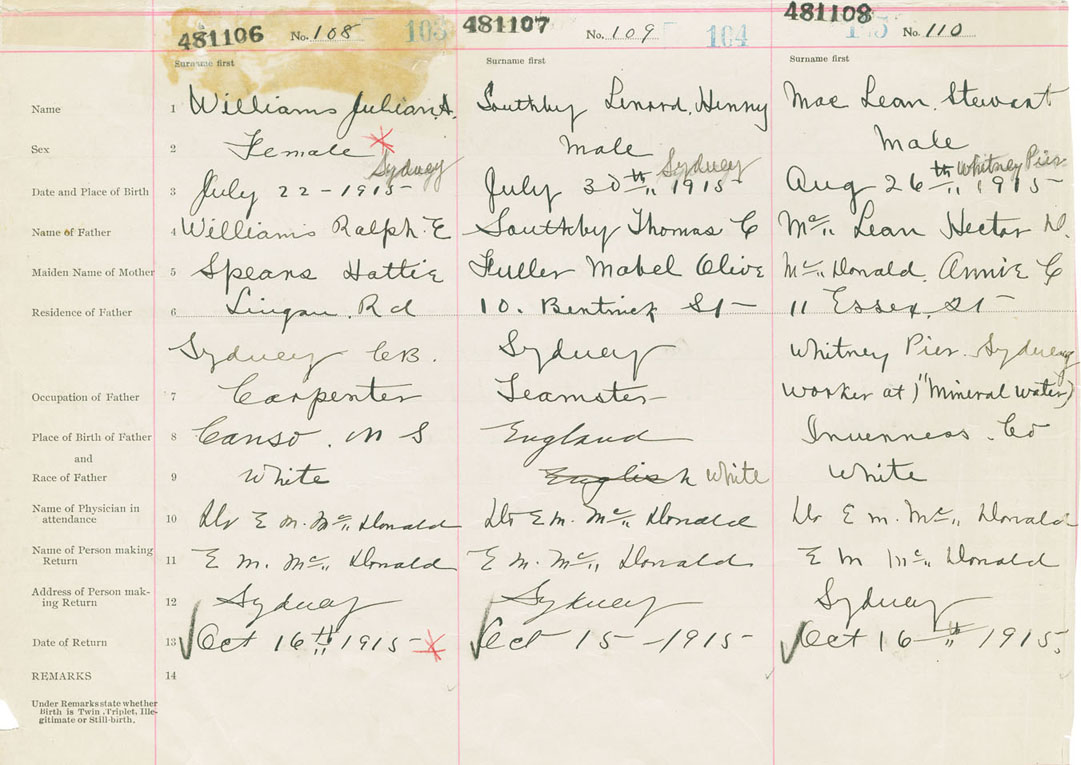 481106 No. 108 103 481107 No. 109 104 481108 No. 110
Surname first Surname first Surname first
Name 1 Williams Julian A. Southby Linard, Henny Mac Lean, Stewart
Sex 2 Female Male Male
Sydney Sydney Whitney Pier
Date and Place of Birth 3 July 22 - 1915 July 30th 1915 Aug 26th 1915
Name of Father 4 Williams Ralph E Southby Thomas C Mc Lean Hector
Maiden Name of Mother 5 Spears Hattie Fuller Mabel Olive Mc Donald, Annie C
Residence of Father 6 Lingan Rd 10. Bentinck St 11 Essex St
Sydney CB. Sydney Whitney Pier Sydney
Occupation of Father 7 Carpenter Teamster worker at ) "Mineral water)
Place of Birth of Father 8 Canso. N S England Inverness. Co
and
Race of Father 9 White English White White
Name of Physician in
attendance 10 Dr E M. Mc Donald Dr E M. Mc Donald Dr E M. Mc Donald
Name of Person making
Return 11 E M. Mc Donald E M. Mc Donald E M Mc Donald
Address of Person mak-
ing Return 12 Sydney Sydney Sydney
Date of Return 13 Oct 16th 1915 Oct 15 - 1915 Oct 16th 1915.
REMARKS 14
Under Remarks state whether
Birth is Twin, Triplet, Ille-
gitimate or Still-birth.